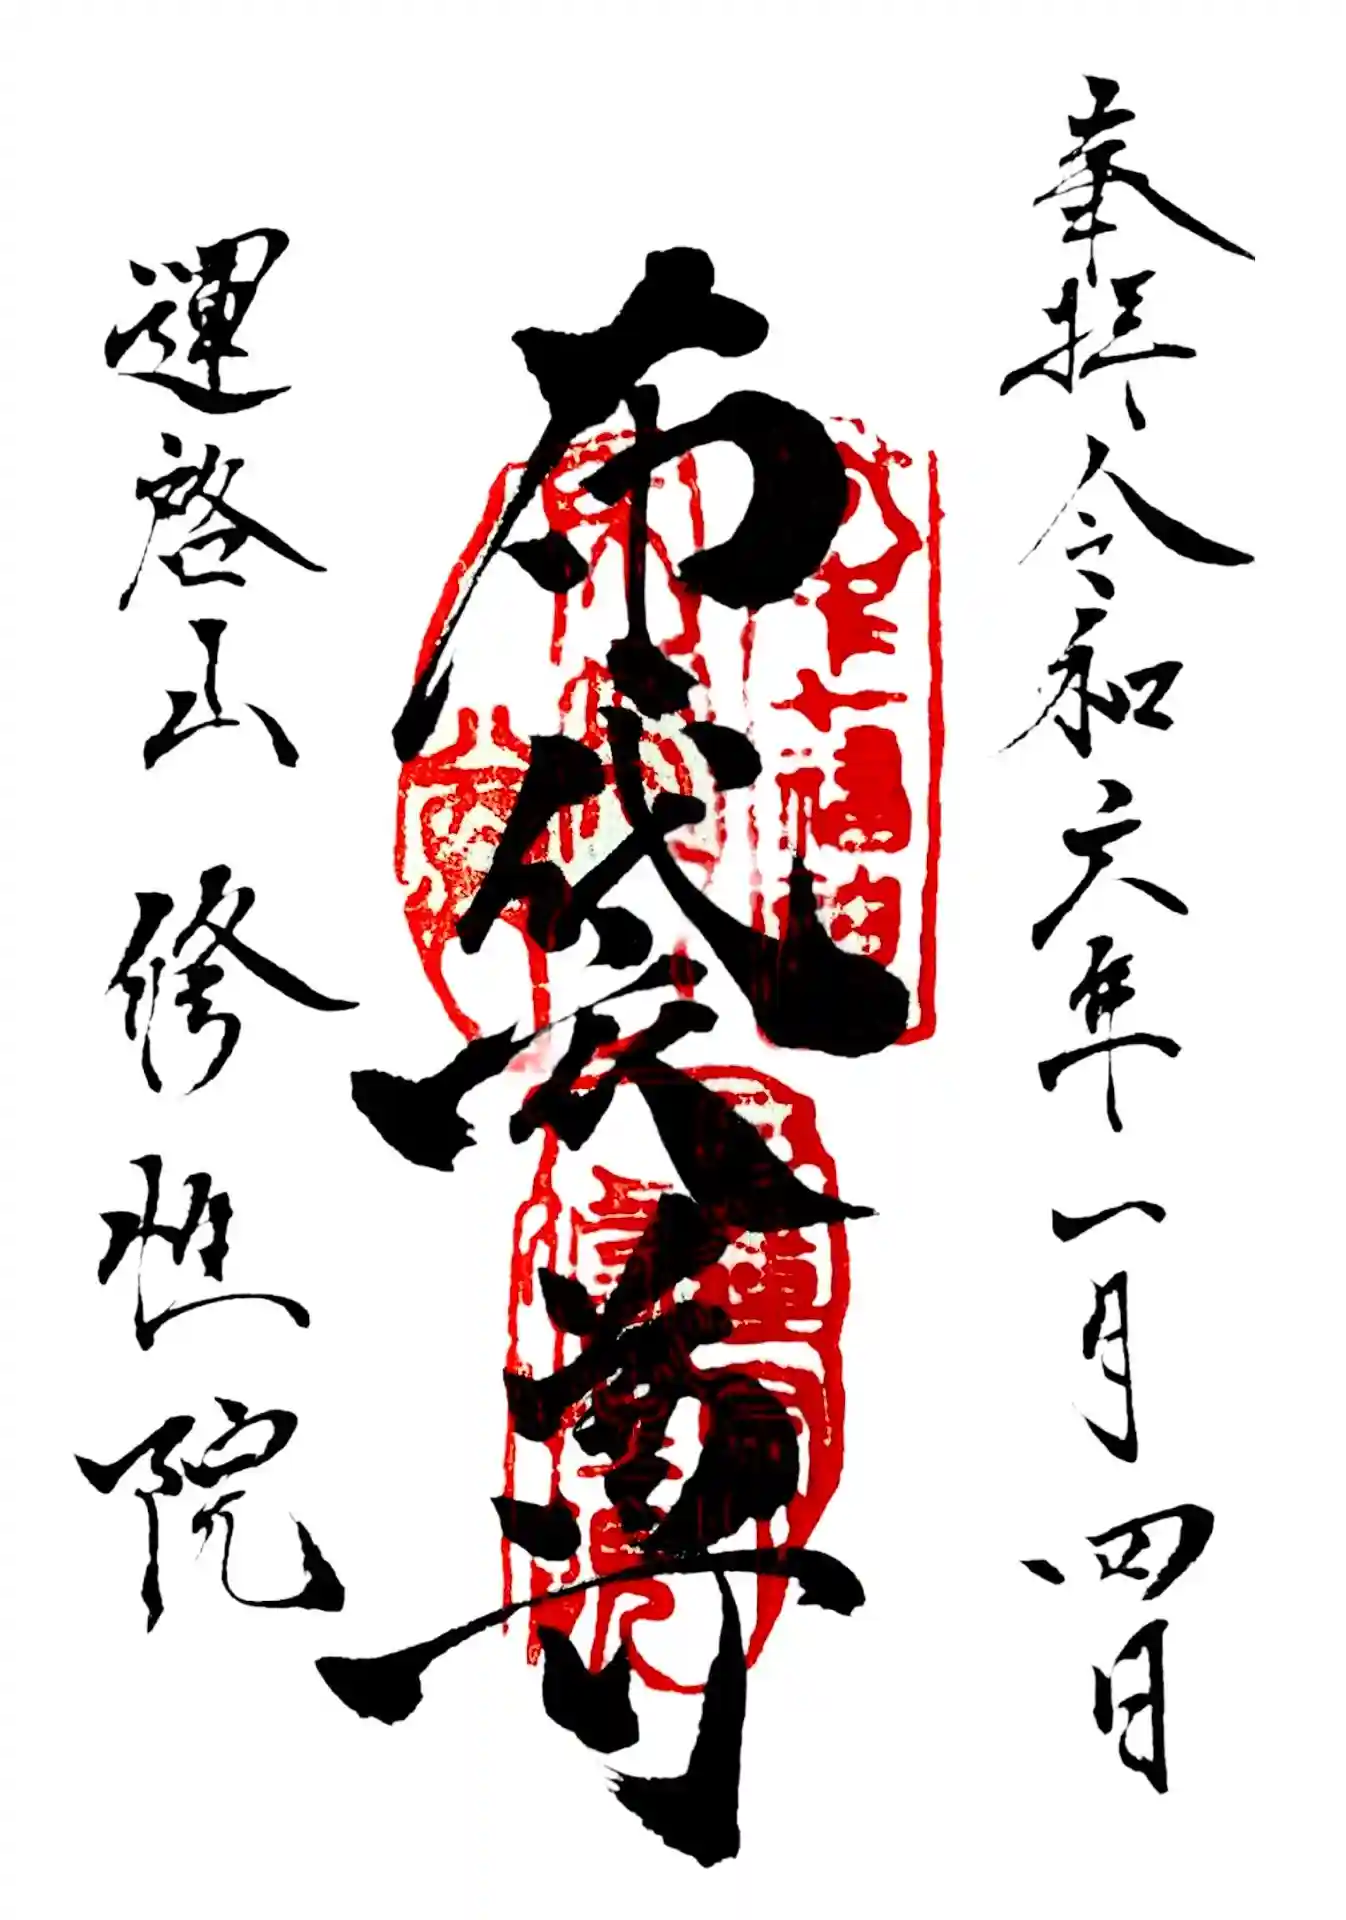 奉拝 令和六年一月四日
布袋尊
運啓山 修性院